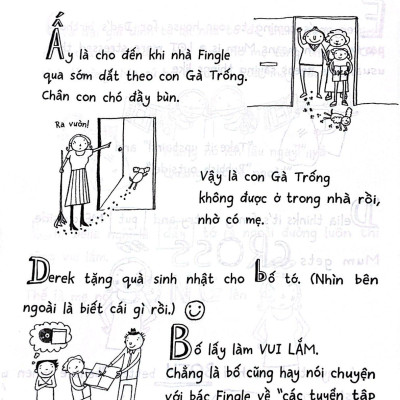 Ấy là cho đến khi nhà Fingle
qua sớm dắt theo con Gà Trống.
Chân con chó đầy bùn.
Ra vườn!
Vậy là con Gà Trống
không được ở trong nhà rồi,
nhờ có mẹ.
Derek tặng quà sinh nhật cho bố tớ. (Nhìn bên
ngoài là biết cái gì rồi.)
Bố lấy làm VUI LẮM.
Chẳng là bố cũng hay nói chuyện
với bác Fingle về "các tuyển tập